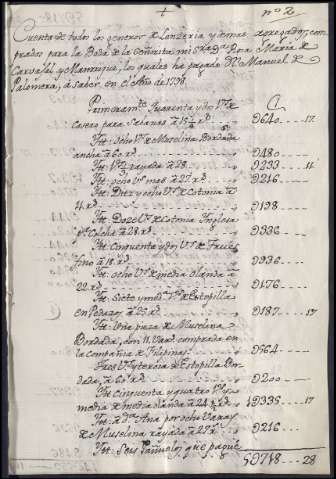 +
nº 2
Cuenta de todos los generos de Lenzeria y demas agregados, com
prados para la Boda de la Señorita mi Sra Dn Dona Maria de
Carvajal y Manrique, los quales ha pagado Dn Manuel de
Palomera, á saver, en el Año de 1791.
Primeramte Quarenta y dos Vs de
Casero para Savanas á 15¼ rs 0640 17
Yt: ocho Vs de Muselina Bordada
ancha á 60 rs 0480
Yt: Vs rayada á 28 0233 11
Yt: ocho Vs mas á 27 rs 0216
Yt: Diez y ocho Vs de Cotonia á
11 rs 0198
Yt: Doze Vs de Cotonia Inglesa
pa Colcha á 28 rs 0336
Yt: Cinquenta y dos Vs de
fino á 18 rs 0936
Yt: ocho Vs de media olanda á
22 rs 0176
Yt: Siete y med Vs de Estopilla
en Pedazos á 25 rs 0187 17
Yt: Una pieza de Muselina
Bordada, con 11 Varas comprada en
la Compañia de Filipinas 0564
Yt: Vs y tercia de Estopilla Bor
dada, á 60 rs 0200
Yt: Cinquenta y quatro Vs de
media de media olanda á 24 rs 1335 17
Yt: a Da Ana por ocho Varas
de Muselina rayada á 27 rs 0216
Yt: Seis Pañuelos que pague
50718 28